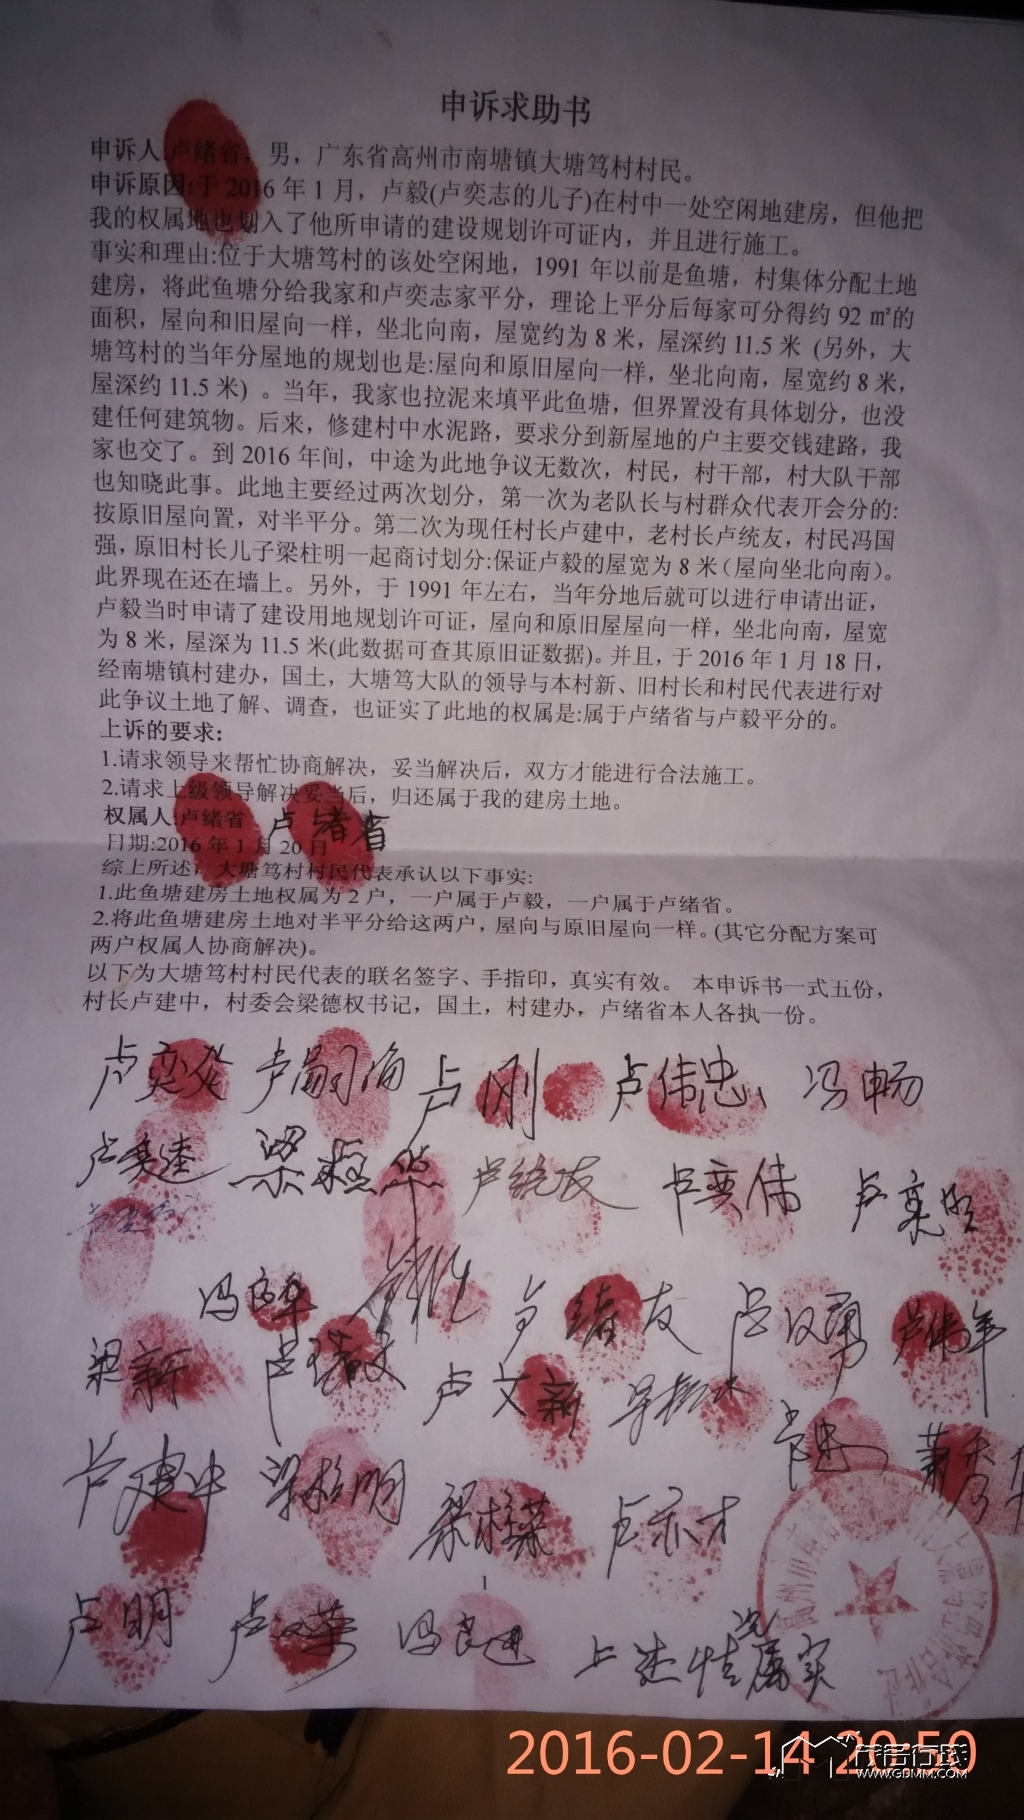 申诉求助书
申诉人:卢绪省，男，广东省高州市南塘镇大塘笃村村民。
申诉原因:于 2016 年 1 月，卢毅(卢奕志的儿子)在村中一处空闲地建房，但他把
我的权属地也划入了他所申请的建设规划许可证内，并且进行施工。
事实和理由:位于大塘笃村的该处空闲地，1991 年以前是鱼塘，村集体分配土地
建房，将此鱼塘分给我家和卢奕志家平分，理论上平分后每家可分得约 92 ㎡的
面积，屋向和旧屋向一样，坐北向南，屋宽约为 8 米，屋深约 11.5 米 (另外，大
塘笃村的当年分屋地的规划也是:屋向和原旧屋向一样，坐北向南，屋宽约 8 米，
屋深约 11.5 米) 。当年，我家也拉泥来填平此鱼塘，但界置没有具体划分，也没
建任何建筑物。后来，修建村中水泥路，要求分到新屋地的户主要交钱建路，我
家也交了。到 2016 年间，中途为此地争议无数次，村民，村干部，村大队干部
也知晓此事。此地主要经过两次划分，第一次为老队长与村群众代表开会分的:
按原旧屋向置，对半平分。第二次为现任村长卢建中，老村长卢统友，村民冯国
强，原旧村长儿子梁柱明一起商讨划分:保证卢毅的屋宽为 8 米（屋向坐北向南）。
此界现在还在墙上。另外，于 1991 年左右，当年分地后就可以进行申请出证，
卢毅当时申请了建设用地规划许可证，屋向和原旧屋屋向一样，坐北向南，屋宽
为 8 米，屋深为 11.5 米(此数据可查其原旧证数据)。并且，于 2016 年 1 月 18 日，
经南塘镇村建办，国土，大塘笃大队的领导与本村新、旧村长和村民代表进行对
此争议土地了解、调查，也证实了此地的权属是:属于卢绪省与卢毅平分的。
上诉的要求:
1.请求领导来帮忙协商解决，妥当解决后，双方才能进行合法施工。
2.请求上级领导解决妥当后，归还属于我的建房土地。
权属人:卢绪省 卢绪省
日期:2016 年 1 月 20 日
综上所述，大塘笃村村民代表承认以下事实:
1.此鱼塘建房土地权属为 2 户，一户属于卢毅，一户属于卢绪省。
2.将此鱼塘建房土地对半平分给这两户，屋向与原旧屋向一样。(其它分配方案可
两户权属人协商解决)。
以下为大塘笃村村民代表的联名签字、手指印，真实有效。 本申诉书一式五份，
村长卢建中，村委会梁德权书记，国土，村建办，卢绪省本人各执一份。
卢刚 卢伟忠 冯畅
卢统友 卢奕伟 卢奕明
卢绪友 卢汉勇 卢伟年
梁新 卢瑞文 卢文新
卢建中 梁柱明 梁柱荣 卢亦才
1
卢明 卢汉荣 冯良进 上述情况属实
2016-02-14 20:50
茂名行网
WWW.GDMM.COM